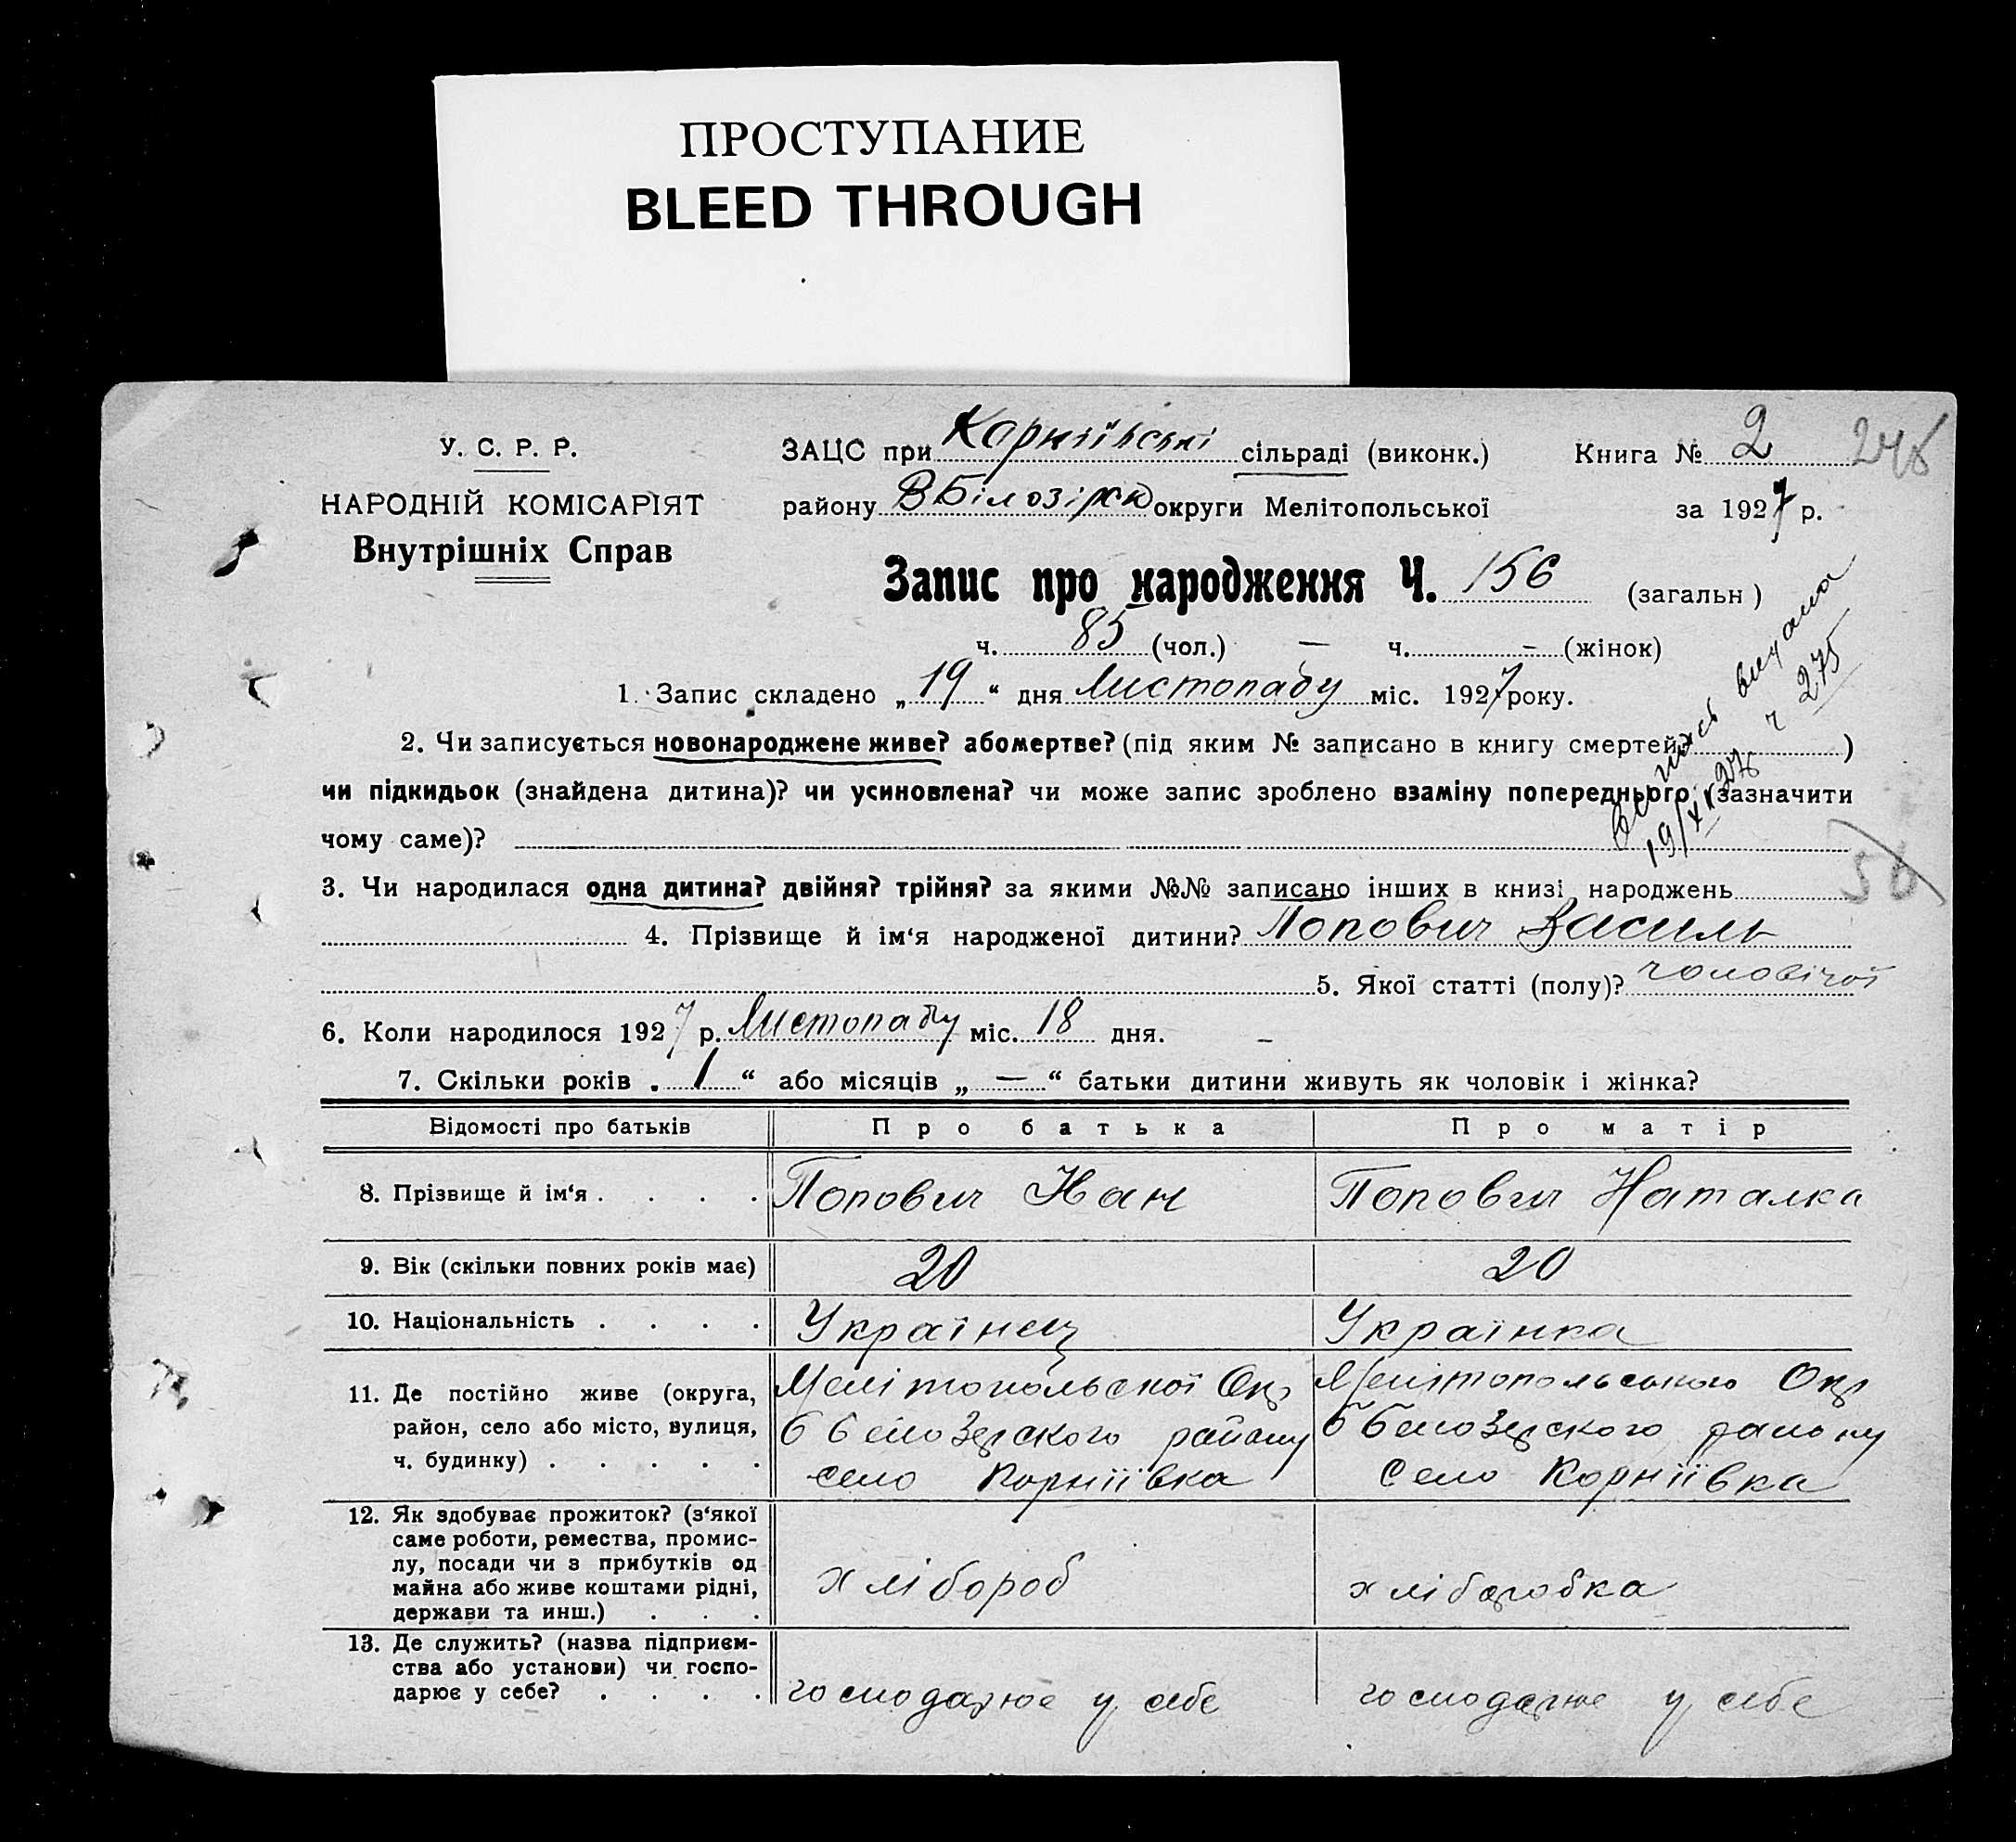 ПРОСТУПАНИЕ
BLEED THROUGH
У. С. Р. Р.
НАРОДНІЙ КОМІСАРІЯТ
Внутрішніх Справ
ЗАЦС при Карніївські сільраді (виконк.)
району ВБілозірск округи Мелітопольської
Книга № 2
за 1927 р.
Запис про народження Ч. 156 (загальн)
ч. 85 (чол.) — ч. - (жінок)
1. Запис складено „19“ дня Листопаду міс. 1927 року.
2. Чи записується новонароджене живе? або мертве? (під яким № записано в книгу смертей )
чи підкидьок (знайдена дитина)? чи усиновлена? чи може запис зроблено взаміну попереднього (зазначити
чому саме)?
видана
19/XI 27 ч 275
3. Чи народилася одна дитина? двійня? трійня? за якими №№ записано інших в книзі народжень
4. Прізвище й ім‘я народженої дитини? Попович Василь
5. Якої статті (полу)? чоловічої
6. Коли народилося 1927 р. Листопаду міс. 18 дня.
7. Скільки років „1“ або місяців „—“ батьки дитини живуть як чоловік і жінка?
Відомості про батьків Про батька Про матір
8. Прізвище й ім‘я . . . . Попович Іван Попович Наталка
9. Вік (скільки повних років має) 20 20
10. Національність . . . . Українец Українка
11. Де постійно живе (округа,
район, село або місто, вулиця,
ч. будинку) . . . . .
Мелітопольскої Окр
б Белозерского району
село Корніївка
Мелітопольського Окр
б Белозерского району
Село Корніївка
12. Як здобуває прожиток? (з‘якої
саме роботи, ремества, промис-
лу, посади чи з прибутків од
майна або живе коштами рідні,
держави та инш.) . . .
хлібороб
хліборобка
13. Де служить? (назва підприєм-
ства або установи) чи госпо-
дарює у себе? . . . .
господарює у себе
господарює у себе